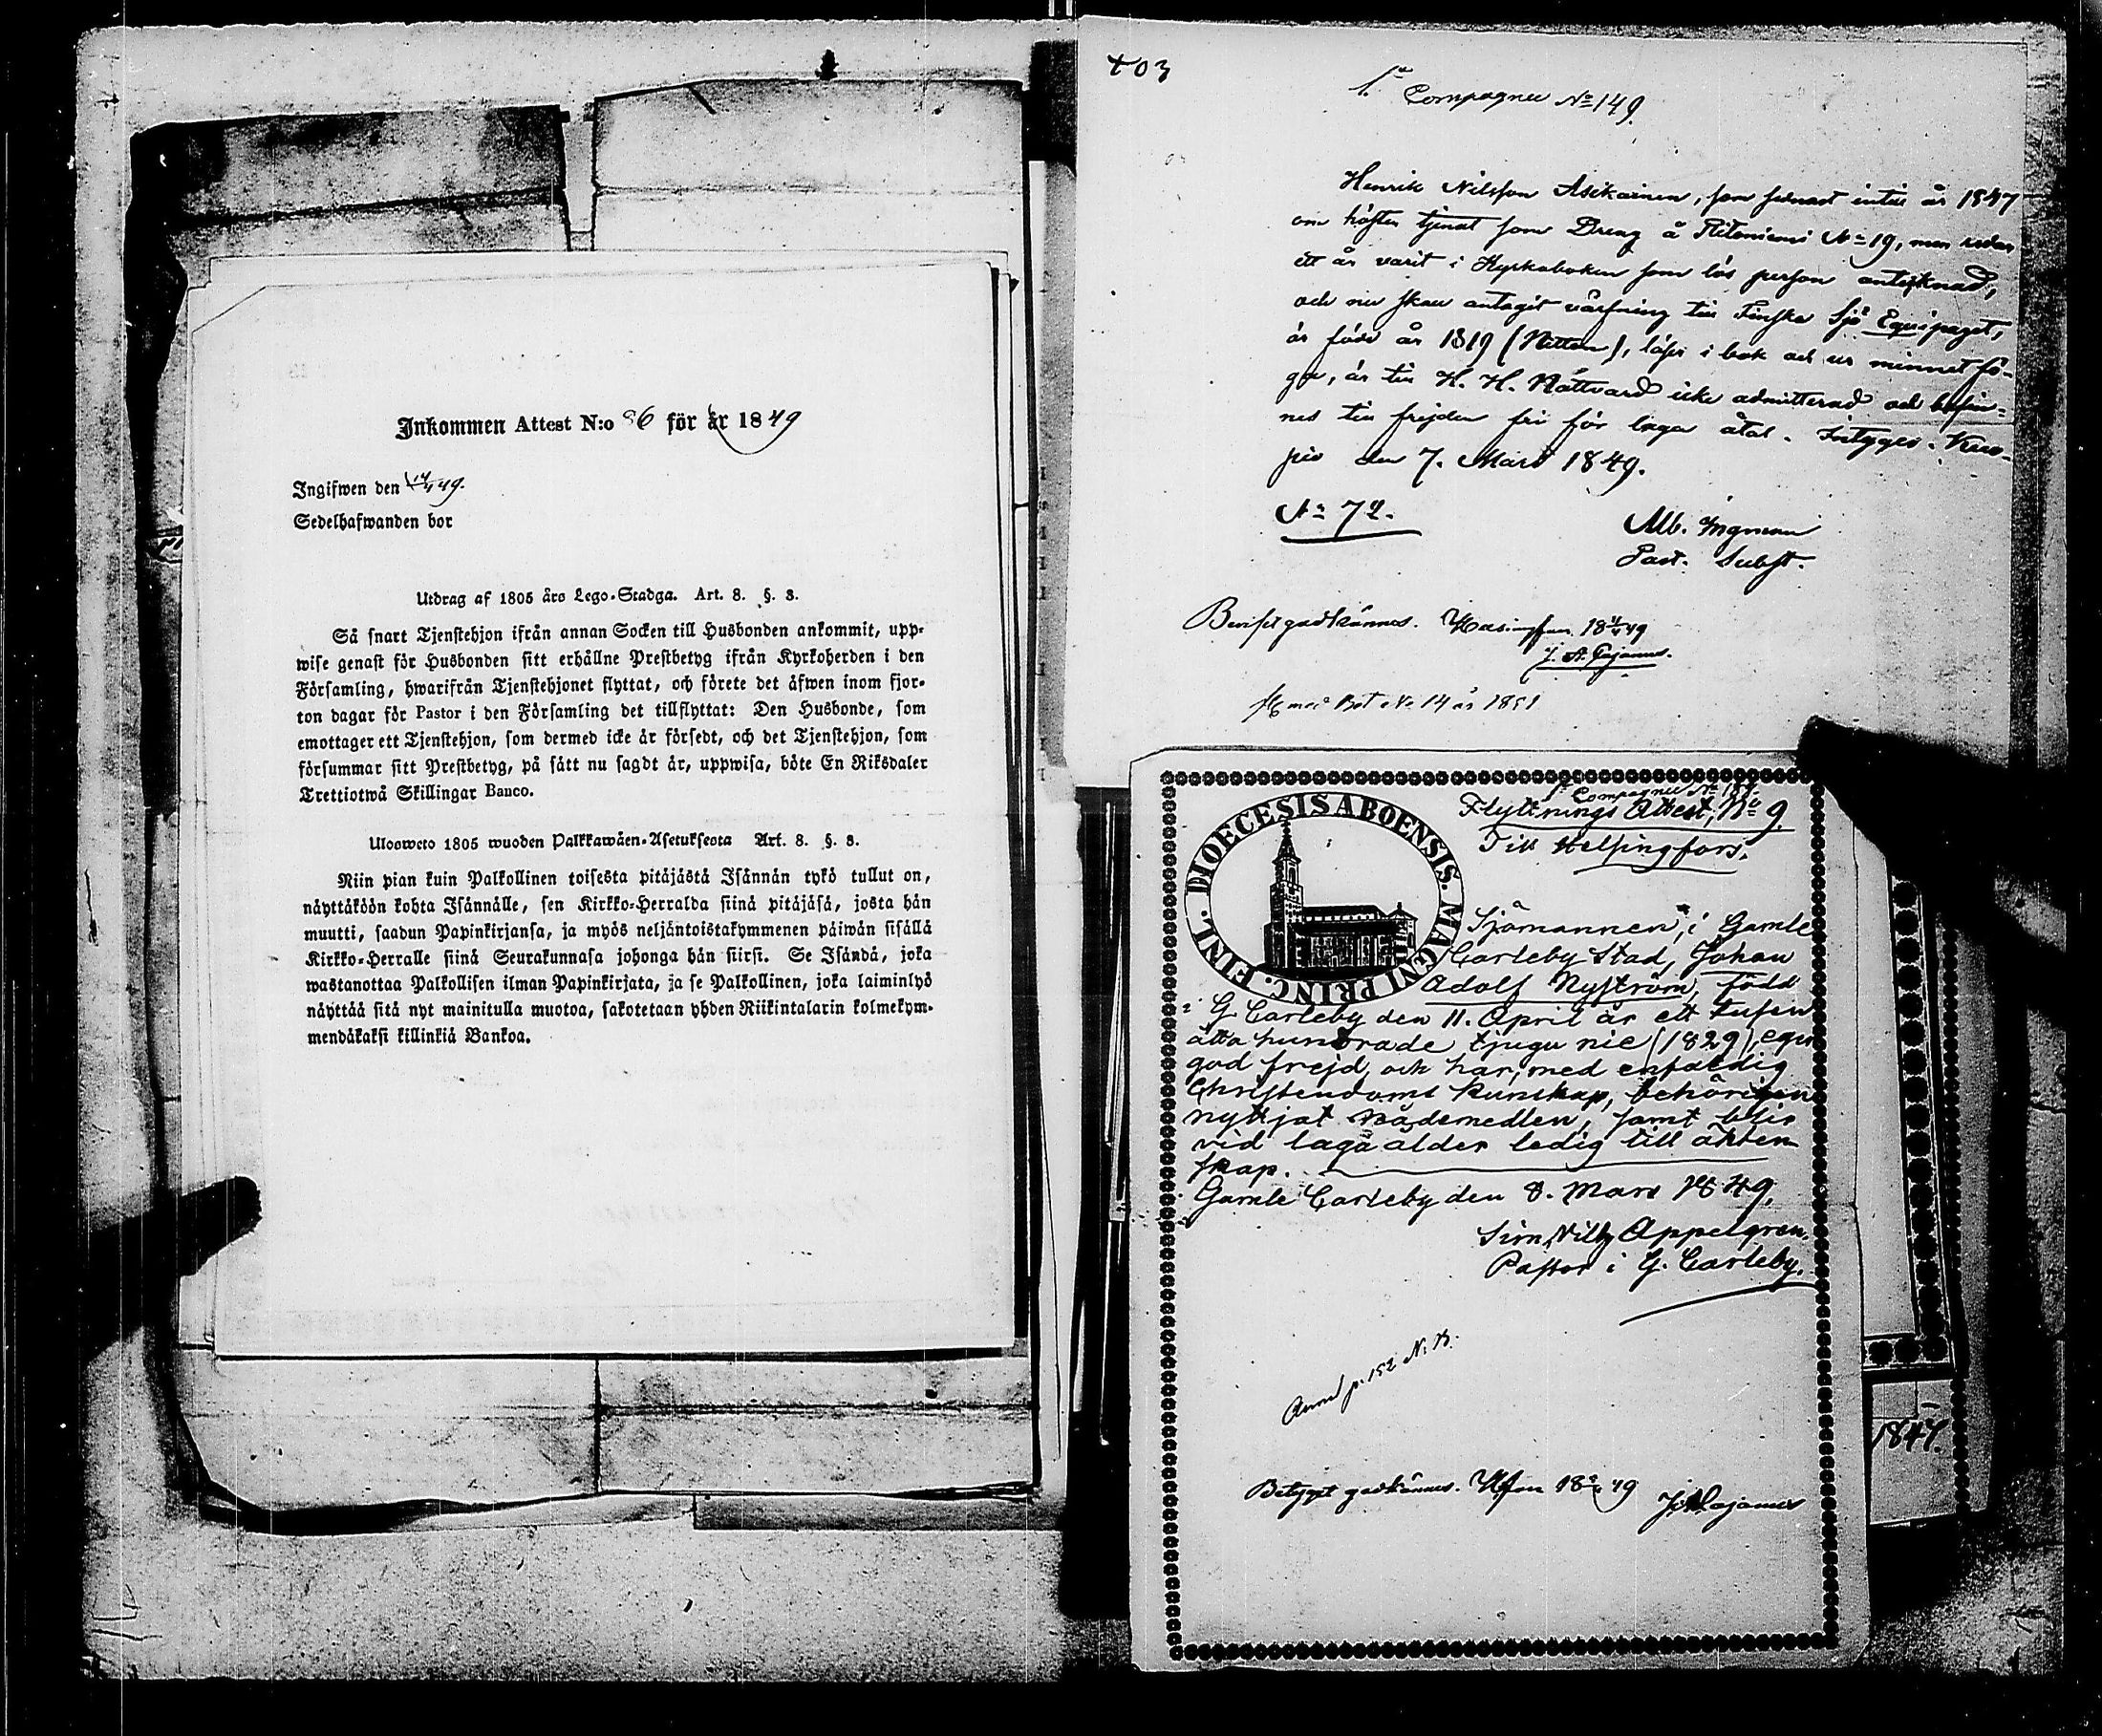 Inkommen Attest N:o 86 för år 1849
Ingifwen den 14/4 49.
Sedelhafwanden bor
Utdrag af 1805 års Lego-Stadga. Art. 8. §. 3.
Så snart Tjenstehjon ifrån annan Socken till Husbonden ankommit, upp-
wise genast för Husbonden sitt erhållne Prestbetyg ifrån Kyrkoherden i den
Församling, hwarifrån Tjenstehjonet flyttat, och förete det äfwen inom fjor-
ton dagar för Pastor i den Församling det tillflyttat: Den Husbonde, som
emottager ett Tjenstehjon, som dermed icke är försedt, och det Tjenstehjon, som
försummar sitt Prestbetyg, på sätt nu sagdt är, uppwisa, böte En Riksdaler
Trettiotwå Skillingar Banco.
Ulosweto 1805 wuoden Palkkawäen-Asetuksesta Art. 8. §. 3.
Niin pian kuin Palkollinen toisesta pitäjästä Isännän tykö tullut on,
näyttäköön kohta Isännälle, sen Kirkko-Herralda siinä pitäjäsä, josta hän
muutti, saadun Papinkirjansa, ja myös neljäntoistakymmenen päiwän sisällä
Kirkko-Herralle siinä Seurakunnasa johonga hän siirsi. Se Isändä, joka
wastanottaa Palkollisen ilman Papinkirjata, ja se Palkollinen, joka laiminlyö
näyttää sitä nyt mainitulla muotoa, sakotetaan yhden Riikintalarin kolmekym-
mendäkaksi killinkiä Bankoa.
403
1a Compagnie No 149.
Henrik Nilsson Asikainen, som sednast intill år 1847
om hösten tjenat som Dreng å Ritoniemi No 19, men sedan
ett år varit i Kyrkoboken som lös person antecknad,
och nu skall antagit värfning till Finska Sjö Equipaget,
är född år 1819 (Nitton), läser i bok och ur minnet fö-
ga, är till H. H. Nattvard icke admitterad och befin-
nes till frejden fri för laga åtal. Intygas. Kuo-
pio den 7. Mars 1849.
No 72.
Alb. Ingman
Past. Subst.
Beviset godkännes. Helsingfors 18 49
J. A. Cajanus.
med Bet No 14 år 1851
1a Compagnie No
Flyttnings Attest, No 9.
Till Helsingfors.
FINL. DIOECESIS ABOENSIS. MAGNI PRINC.
Sjömannen, i Gamle
Carleby Stad, Johan
Adolf Nyström, född
i G. Carleby den 11. April år ett tusen
åtta hundrade tjugu nie (1829), eger
god frejd, och har, med enfaldig
Christendoms kunskap, behörigen
nyttjat Nådemedlen, samt blir
vid laga ålder ledig till äkten
skap.
Gamle Carleby den 8. Mars 1849.
Sim. Wilh. Appelgren.
Pastor i G. Carleby.
Annot p. 152 N. B.
Betyget godkännes. Hfors 18 49
J. A. Cajanus
1847.